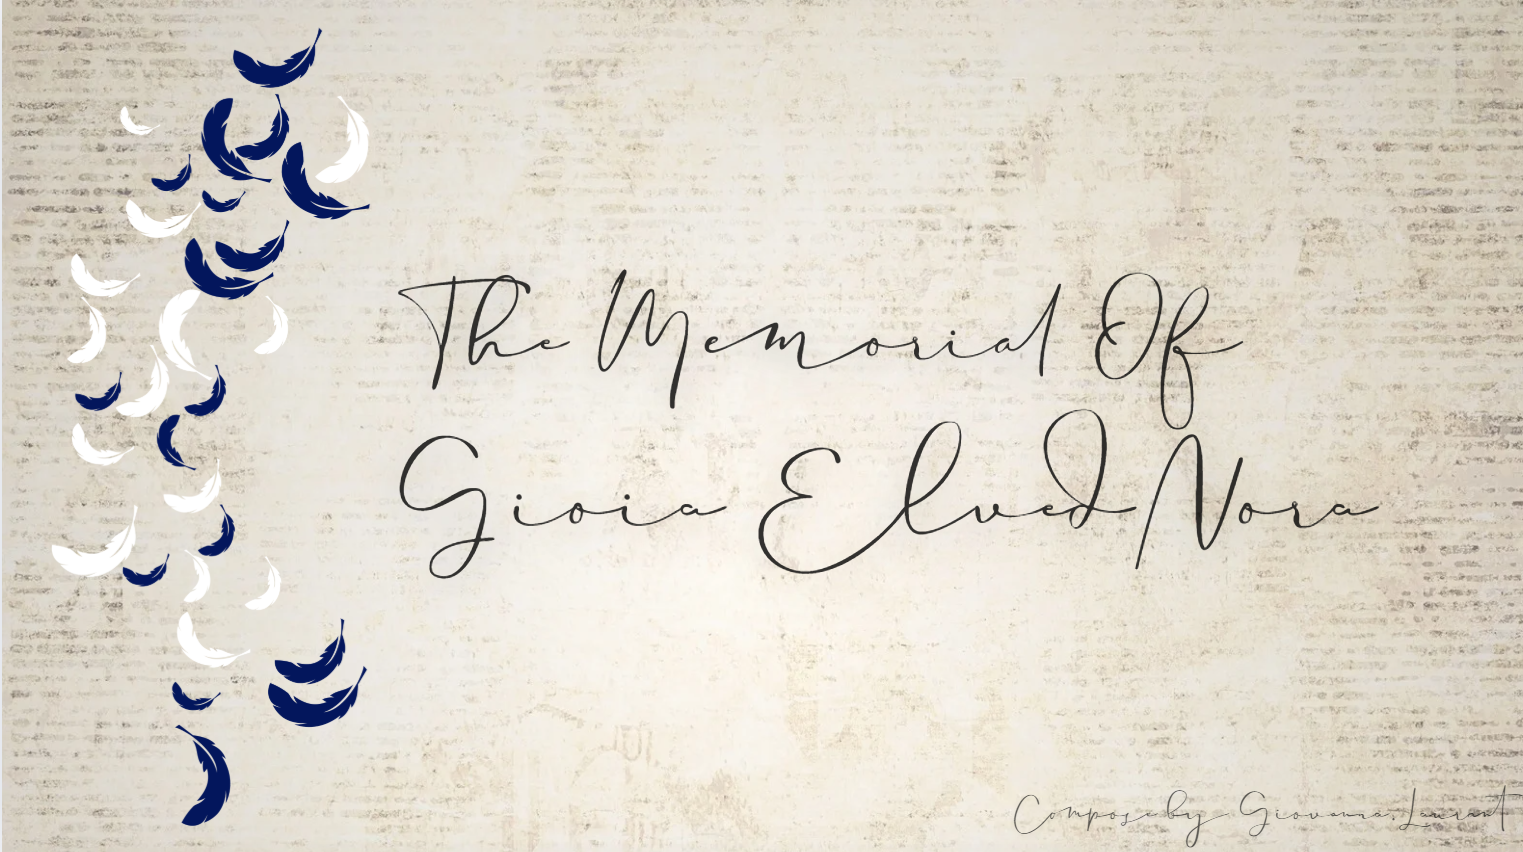 The Memorial Of
Gioia Elved Nora
Compose by Giovanna.Laurant